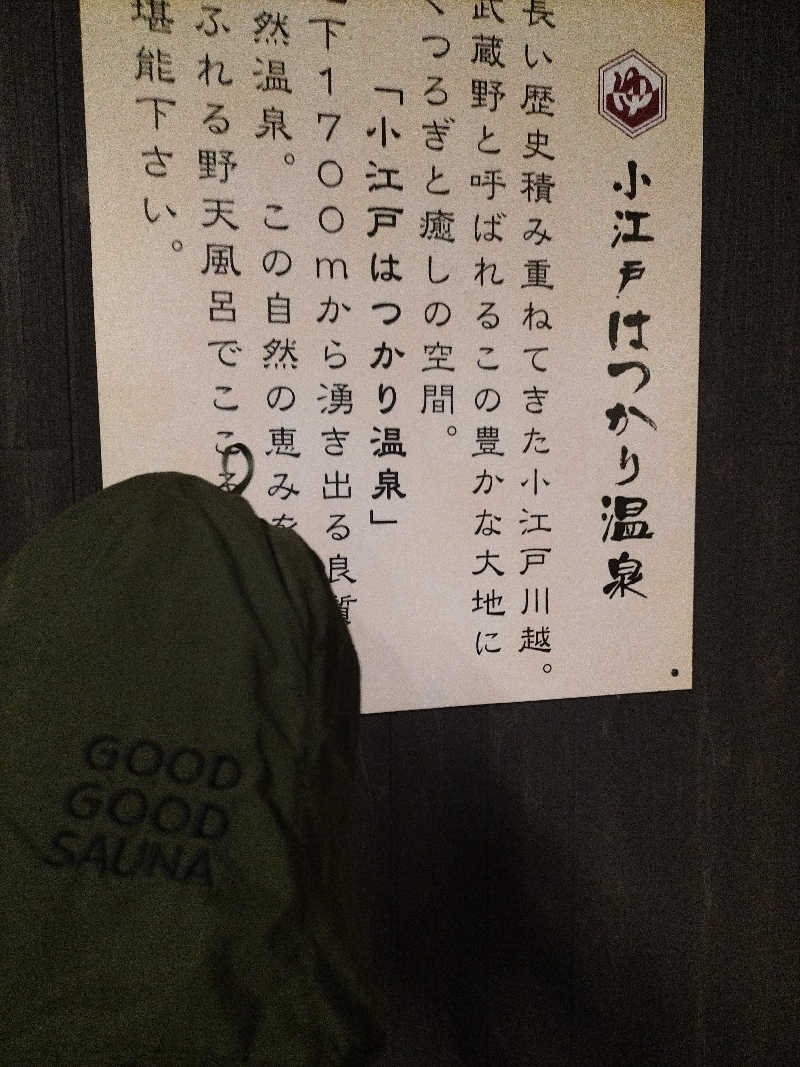 ゆ
小江戸はつかり温泉
長い歴史積み重ねてきた小江戸川越。
武蔵野と呼ばれるこの豊かな大地に
くつろぎと癒しの空間。
「小江戸はつかり温泉」
下1700mから湧き出る良質
然温泉。この自然の恵みを
ふれる野天風呂でここ
堪能下さい。
GOOD
GOOD
SAUNA